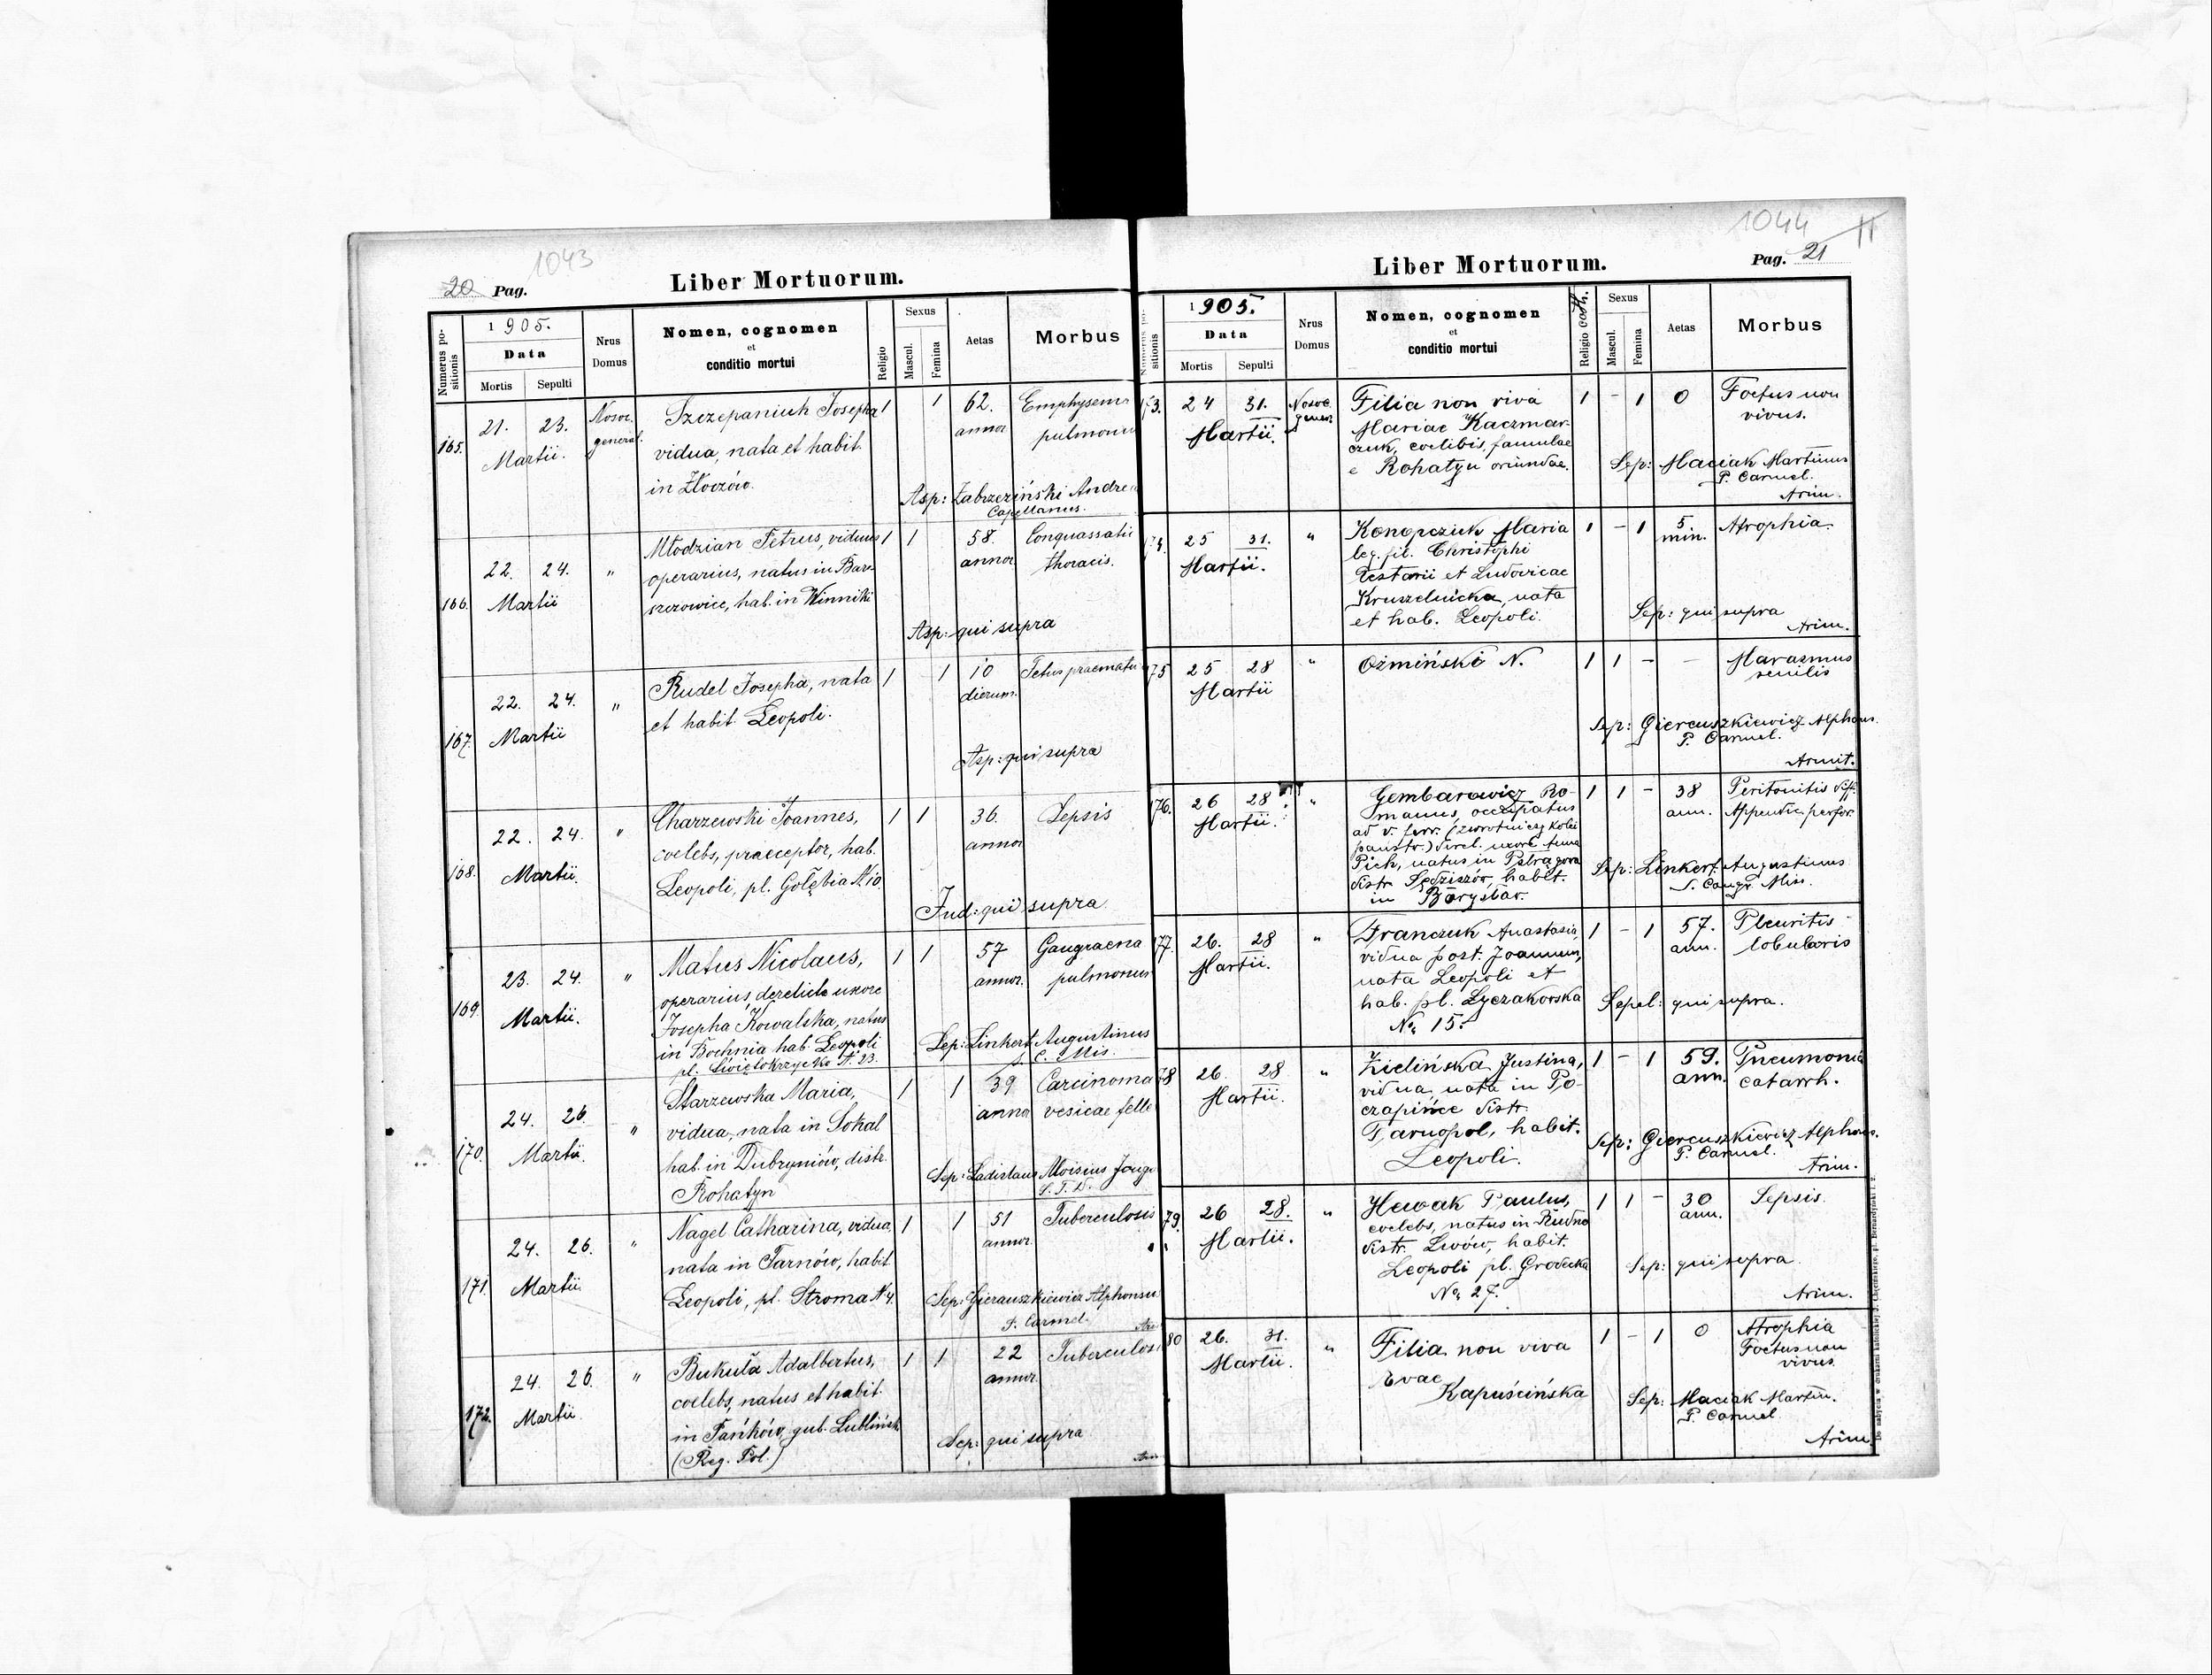 1043
20 Pag.
Liber Mortuorum.
Numerus positionis
1905.
Data
Mortis
Sepulti
Nrus Domus
Nomen, cognomen
et
conditio mortui
Religio
Sexus
Mascul.
Femina
Aetas
Morbus
165.
21. 23.
Martii.
Nosoc.
general.
Szczepaniuk Josepha
vidua, nata et habit.
in Złoczów.
1 1
62.
annor
Emphysema
pulmonum
Asp: Zabrzeziński Andreas
Capellanus.
166.
22. 24.
Martii
"
Młodzian Petrus, viduus
operarius, natus in Bar-
szczowice, hab. in Winniki
1 1
58.
annor
Conquassatio
thoracis.
Asp: qui supra
167.
22. 24.
Martii
"
Rudel Josepha, nata
et habit. Leopoli.
1 1
10
dierum.
Fetus praematu
Asp: qui supra
168.
22. 24.
Martii.
"
Charzewski Joannes,
coelebs, praeceptor, hab.
Leopoli, pl. Gołębia N. 10.
1 1
36.
annor
Sepsis
Ind: qui supra
169.
23. 24.
Martii.
"
Matus Nicolaus,
operarius, derelicta uxore
Josepha Kowalska, natus
in Bochnia hab. Leopoli
pl. Świętokrzycka N. 23.
1 1
57
annor.
Gangraena
pulmonum
Sep: Linkert Augustinus
s. C. Mis.
170.
24. 26.
Martii.
"
Starzewska Maria,
vidua, nata in Sokal
hab. in Dubryniów, distr.
Rohatyn
1 1
39
annor
Carcinoma
vesicae felle
Sep: Ladislaus Aloisius Jougan
S. T. D.
171.
24. 26.
Martii.
"
Nagel Catharina, vidua,
nata in Tarnów, habit
Leopoli, pl. Stroma N 4.
1 1
51
annor.
Tuberculosis
Sep: Gierauszkiewicz Alphonsus
P. Carmel.
172.
24. 26.
Martii.
"
Bukuła Adalbertus,
coelebs, natus et habit.
in Pańków, gub. Lublińsk
(Reg. Pol.)
1 1
22
annor.
Tuberculosi
Sep: qui supra
1044
Pag. 21
Liber Mortuorum.
Numerus positionis
1905.
Data
Mortis
Sepulti
Nrus Domus
Nomen, cognomen
et
conditio mortui
Religio cath.
Sexus
Mascul.
Femina
Aetas
Morbus
173.
24 31.
Martii.
Nosoc.
gener.
Filia non viva
Mariae Kaczmar-
czuk, coelibis, famulae
e Rohatyn oriundae.
1 - 1
0
Foetus non
vivus.
Sep: Maciak Martinus
P. Carmel.
Arim.
174.
25 31.
Martii.
"
Konopczuk Maria
leg. fil. Christophi
Testarii et Ludovicae
Kruszelnicka, nata
et hab. Leopoli.
1 - 1
5.
min.
Atrophia.
Sep: qui supra
Arim.
175
25 28
Martii
"
Oźmiński N.
1 1 -
-
Marasmus
senilis
Sep: Giercuszkiewicz Alphons.
P. Carmel.
Armit.
176.
26 28
Martii.
"
Gembarowicz Ro-
manus, occupatus
ad v. ferr. (zwrotniczy kolei
państw.) virel. uxore Anna
Pich, natus in Pstrągowa
distr. Sędziszów, habit.
in Borysław.
1 1 -
38
ann.
Peritonitis diff.
Appendic. perfor.
Sep: Linkert Augustinus
S. Congr. Miss.
177.
26. 28
Martii.
"
Franczuk Anastasia,
vidua post. Joannem,
nata Leopoli et
hab. pl. Łyczakowska
No. 15.
1 - 1
57.
ann.
Pleuritis
lobularis
Sepel: qui supra.
178
26. 28
Martii.
"
Zielińska Justina,
vidua, nata in Po-
czapińce distr.
Tarnopol, habit.
Leopoli.
1 - 1
59.
ann.
Pneumonia
catarrh.
Sep: Giercuszkiewicz Alphons.
P. Carmel.
Arim.
179.
26 28.
Martii.
"
Hewak Paulus,
coelebs, natus in Rudno
distr. Lwów, habit.
Leopoli pl. Grodecka
No. 27.
1 1 -
30
ann.
Sepsis.
Sep: qui supra
Arim.
180
26. 31.
Martii.
"
Filia non viva
Evae
Kapuścińska
1 - 1
0
Atrophia
Foetus non
vivus.
Sep: Maciak Martin.
P. Carmel.
Arim.